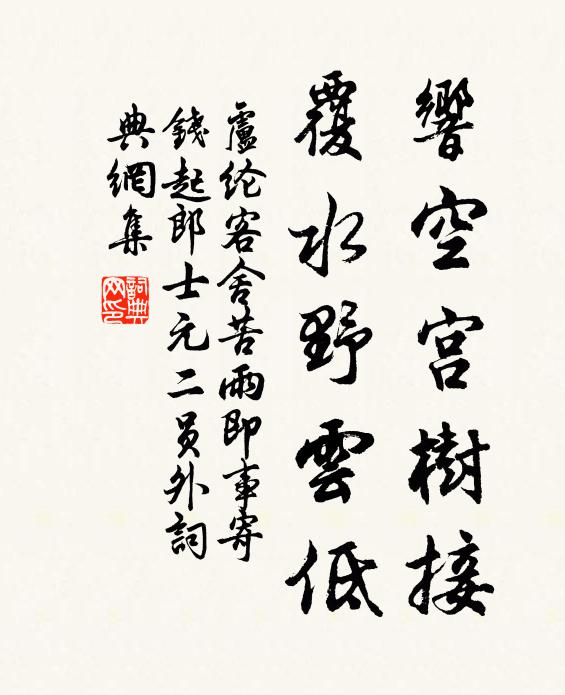 響空宮樹接
覆水野雲低
盧纶客舍苦雨即事寄
錢起郎士元二员外詞
典網集
詞典网印